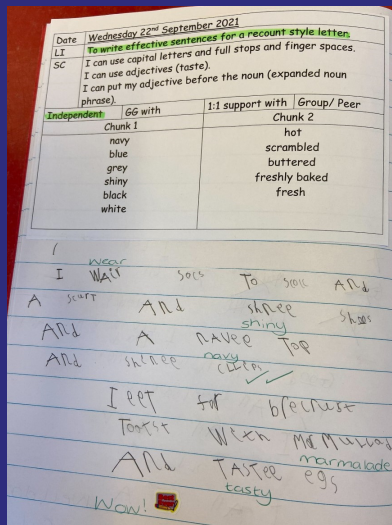 Date Wednesday 22nd September 2021
LI To write effective sentences for a recount style letter.
SC I can use capital letters and full stops and finger spaces.
I can use adjectives (taste).
I can put my adjective before the noun (expanded noun
phrase).
Independent GG with 1:1 support with Group/ Peer
Chunk 1 Chunk 2
navy hot
blue scrambled
grey buttered
shiny freshly baked
black fresh
white
wear
I WAir Socs To AND
A scurt And shnee Shoos
shiny
ANd A nAvee Top
navy
ANd
I eet for brecrust
Tootst With
marmalade
ANd TASTee egs
tasty
Wow!